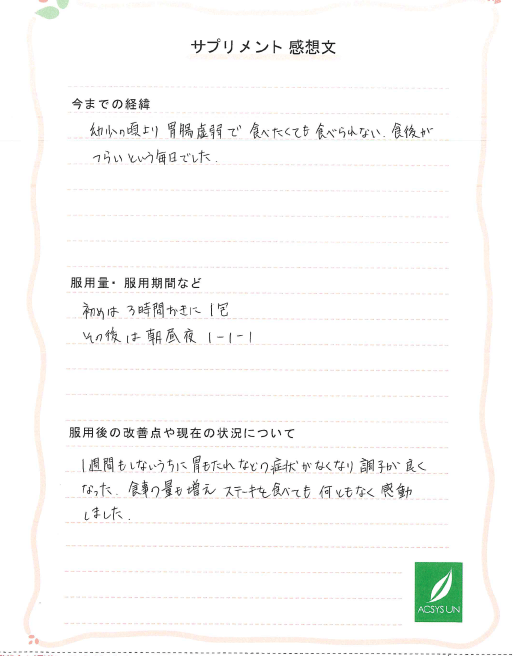 サプリメント 感想文
今までの経緯
幼少の頃より 胃腸虚弱で 食べたくても 食べられない、食後が
つらいという毎日でした.
服用量・服用期間など
初めは 3時間おきに 1包
その後は 朝昼夜 1-1-1
服用後の改善点や現在の状況について
1週間もしないうちに 胃もたれなどの症状がなくなり 調子が良く
なった. 食事の量も増え ステーキを食べても 何ともなく 感動
しました.
ACSYSUN